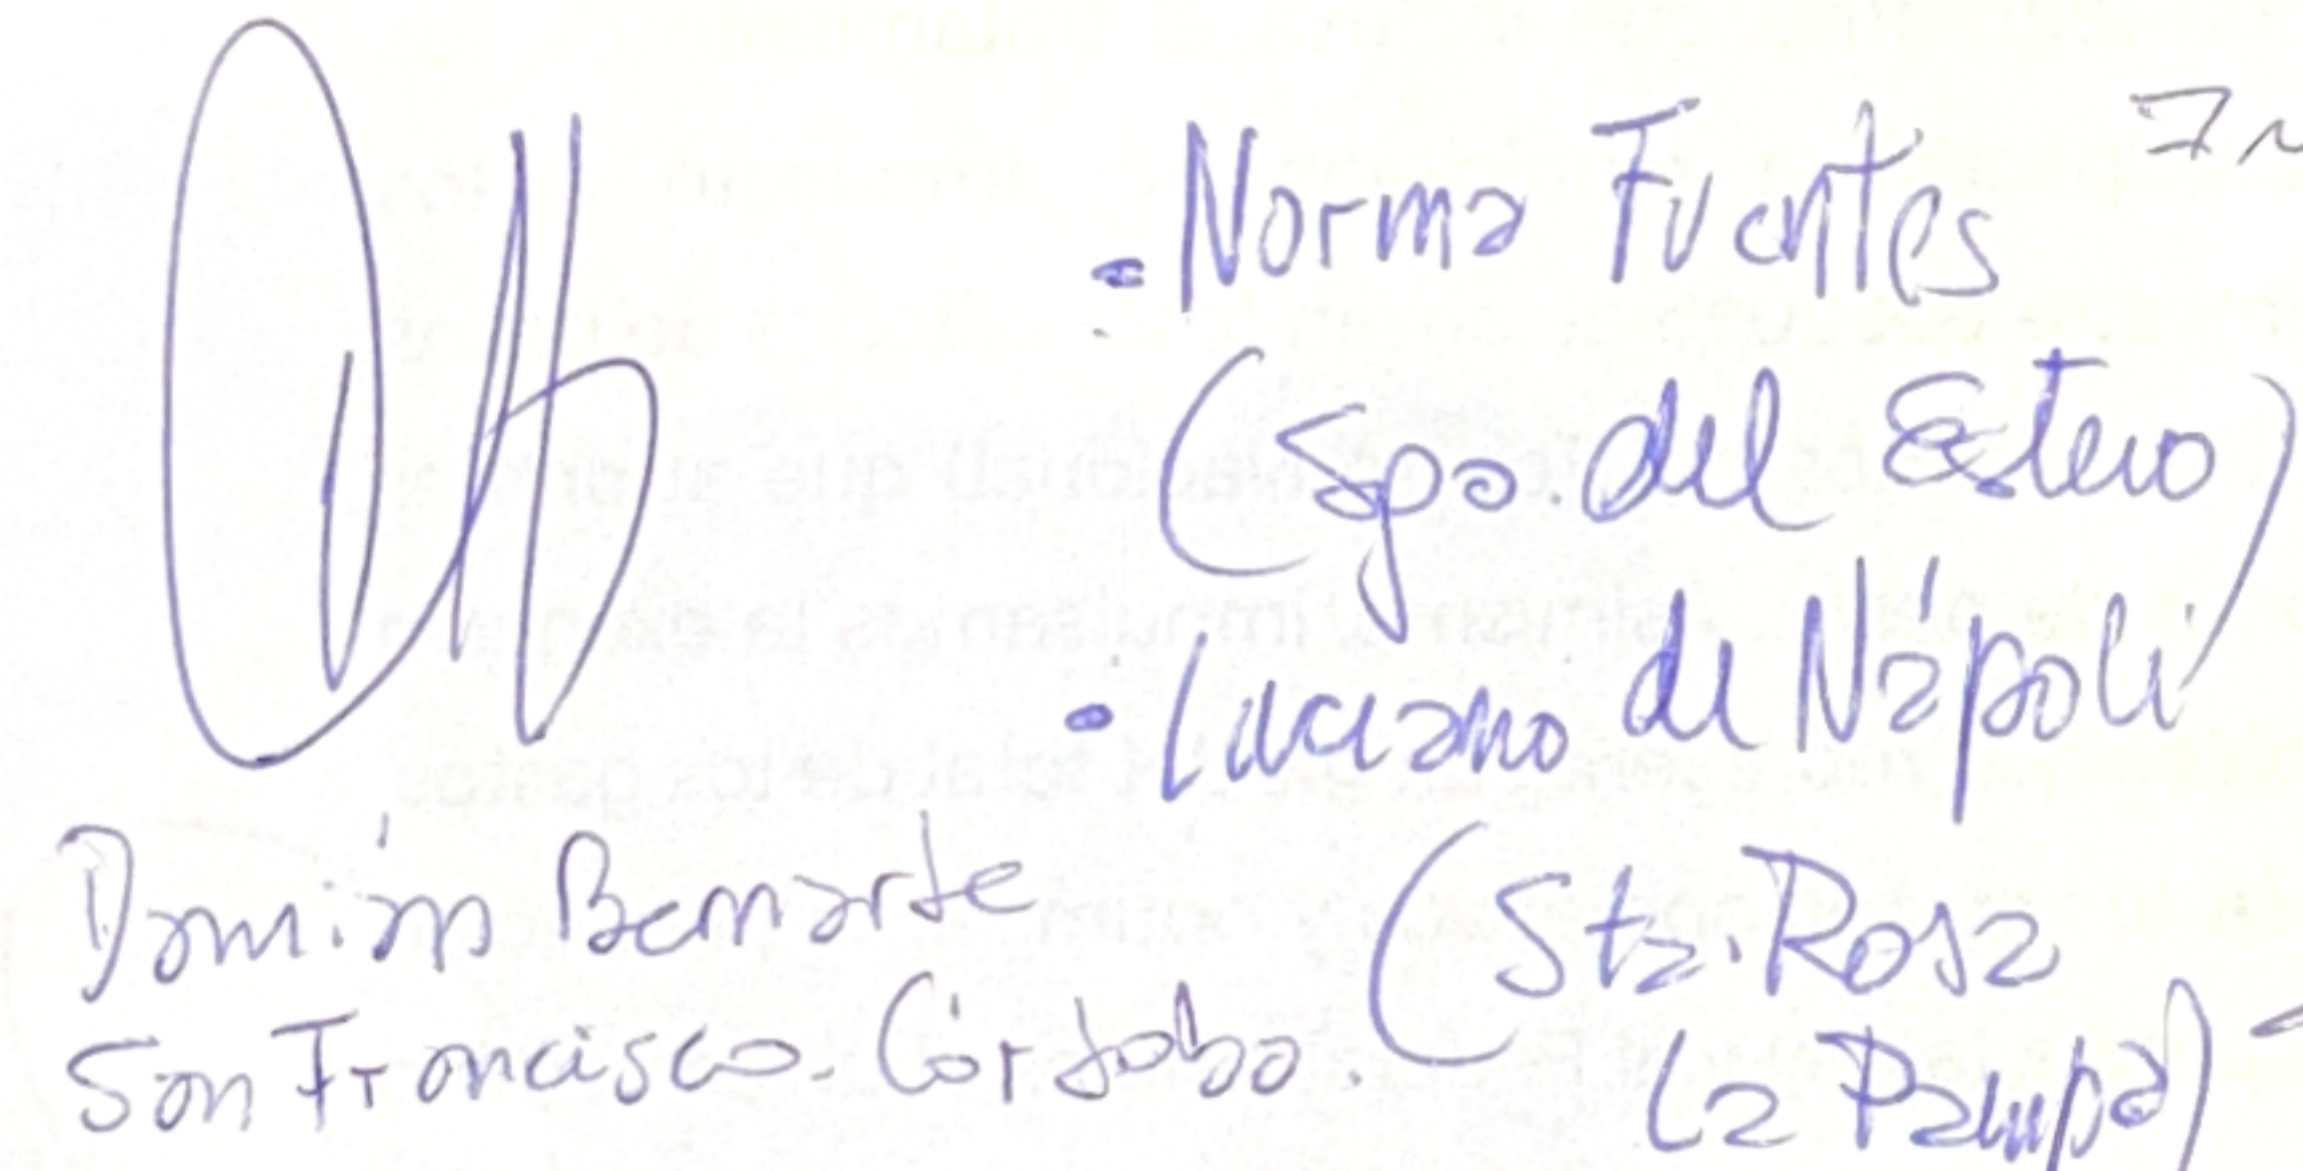 - Norma Fuentes
(Sgo. del Estero)
- Luciano di Nápoli
(Sta. Rosa
La Pampa)
Damián Bernarte
San Francisco - Córdoba.